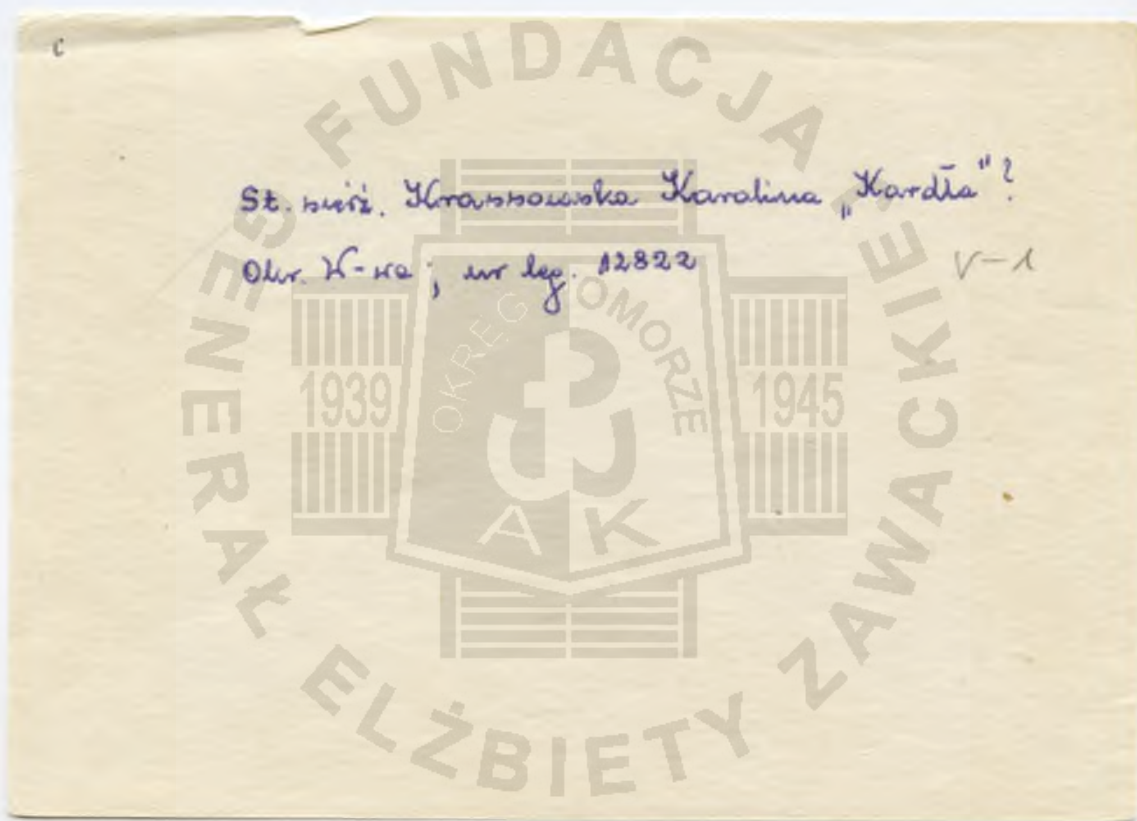 c
St. sierż. Krassowska Karolina „Kardła"?
Okr. W-wa; nr leg. 12822
V-1
FUNDACJA GENERAŁ ELŻBIETY ZAWACKIEJ
OKRĘG POMORZE
1939 1945
AK